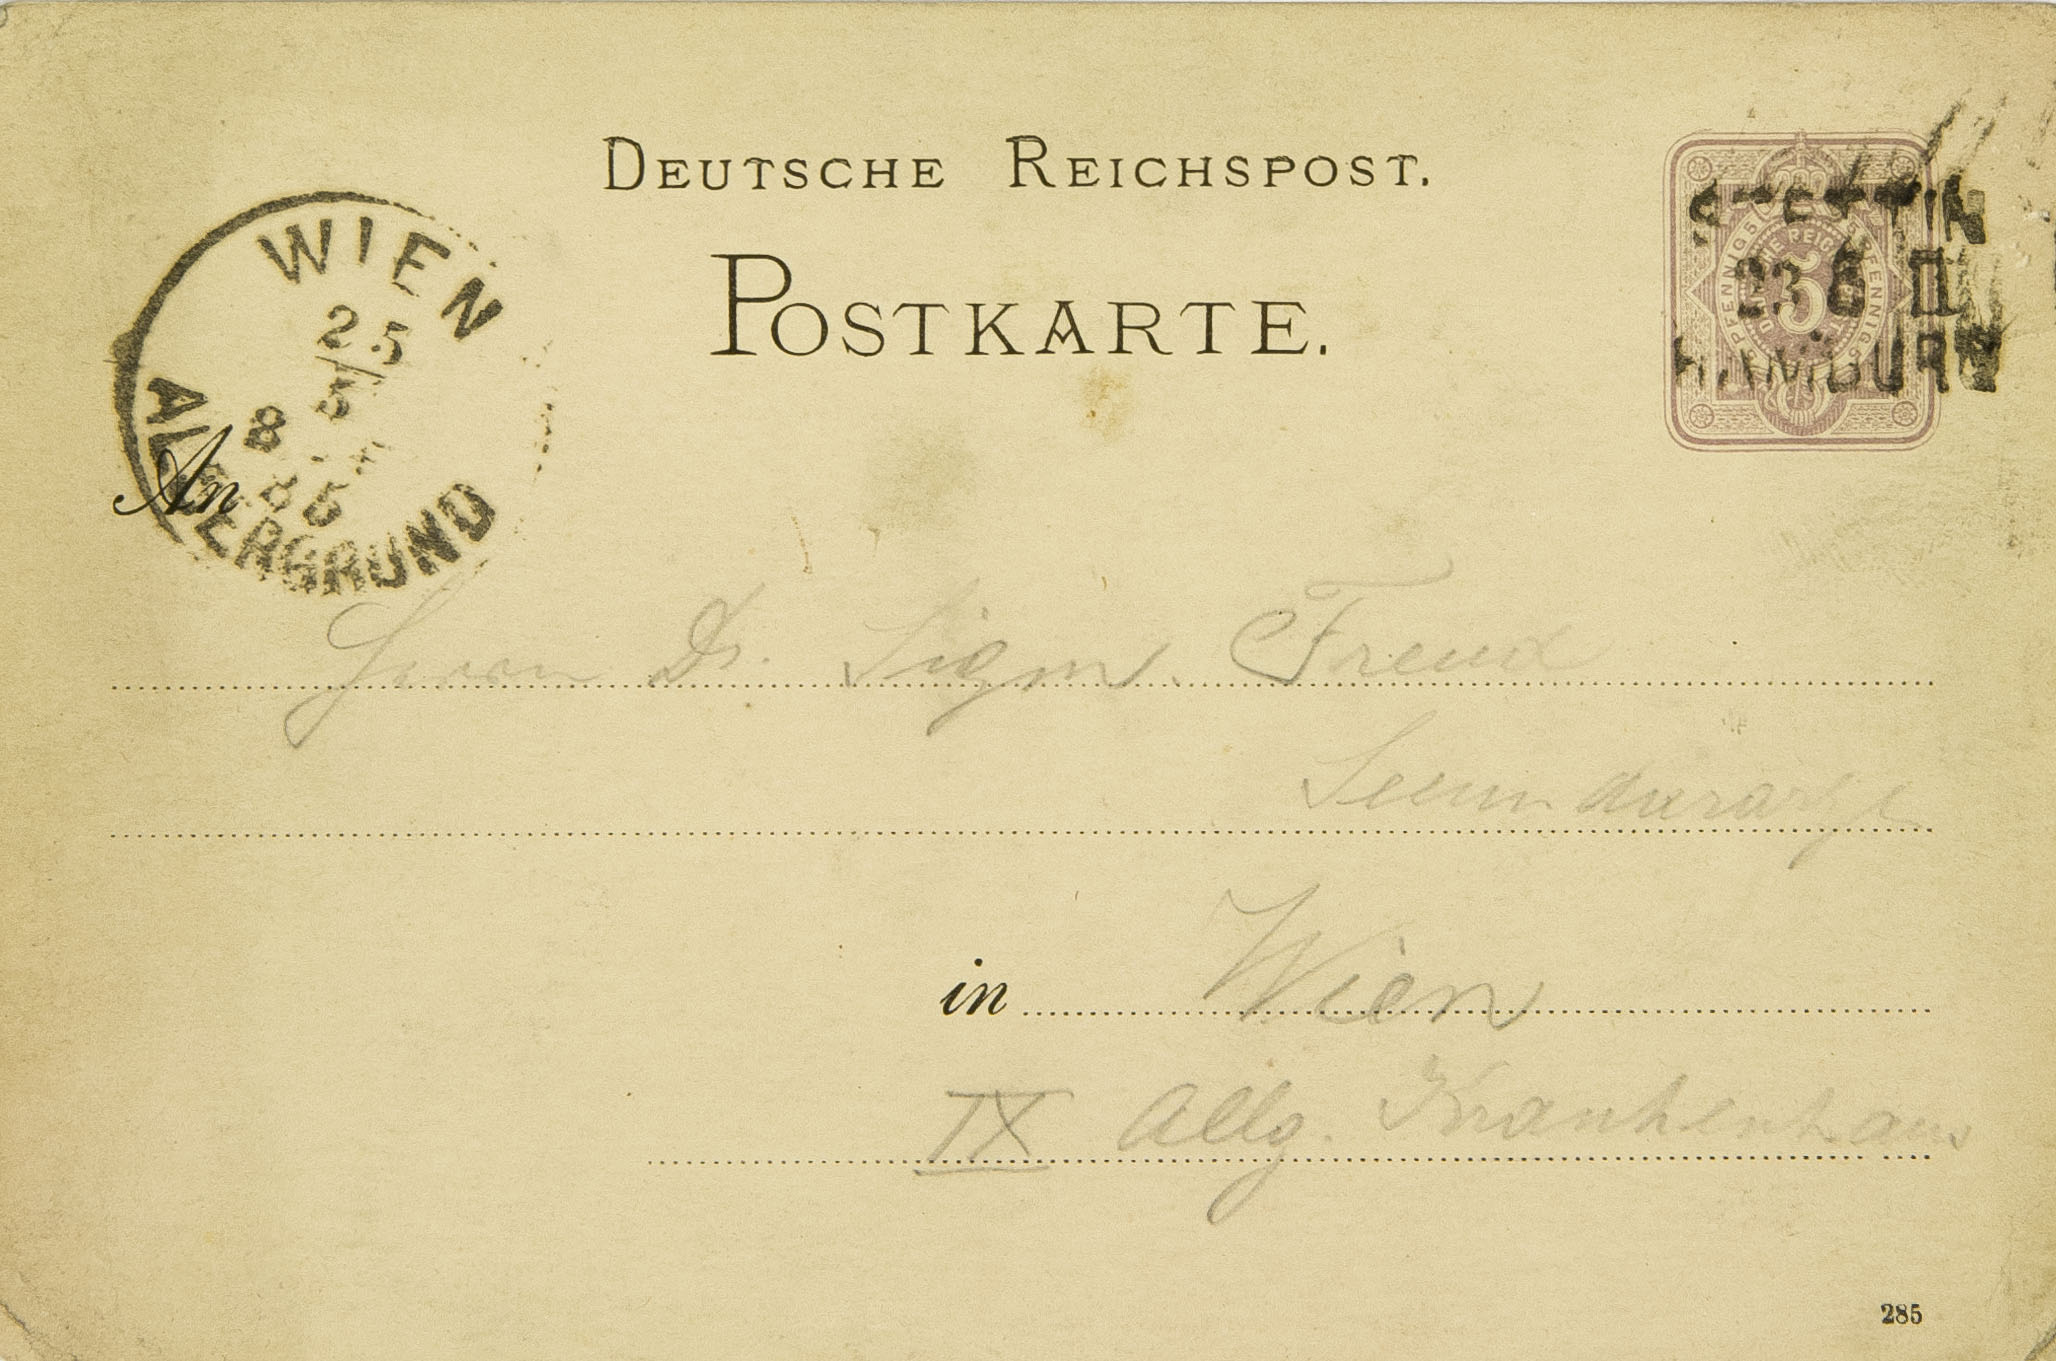 DEUTSCHE REICHSPOST.
POSTKARTE.
WIEN
25
5
8
85
ALSERGRUND
STETTIN
23 5 II
HAMBURG
5 PFENNIG 5 PFENNIG
5
An
Herrn Dr. Sigm. Freud
Secundararzt
in Wien
IX Allg. Krankenhaus
285